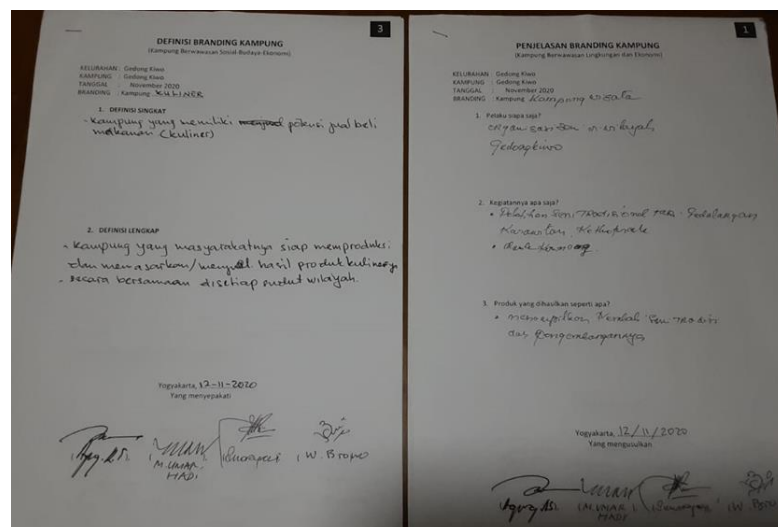 3
DEFINISI BRANDING KAMPUNG
(Kampung Berwawasan Sosial-Budaya-Ekonomi)
KELURAHAN : Gedong Kiwo
KAMPUNG : Gedong Kiwo
TANGGAL : November 2020
BRANDING : Kampung KULINER
1. DEFINISI SINGKAT
- Kampung yang memiliki potensi jual beli
makanan (kuliner)
2. DEFINISI LENGKAP
- Kampung yang masyarakatnya siap memproduksi
dan memasarkan/menjual hasil produk kulinernya
- secara bersamaan disetiap sudut wilayah.
Yogyakarta, 12-11-2020
Yang menyepakati
M. UMAR
HADI
W. Bromo
1
PENJELASAN BRANDING KAMPUNG
(Kampung Berwawasan Lingkungan dan Ekonomi)
KELURAHAN : Gedong Kiwo
KAMPUNG : Gedong Kiwo
TANGGAL : November 2020
BRANDING : Kampung Kampung wisata
1. Pelaku siapa saja?
organisasi wilayah
Gedongkiwo
2. Kegiatannya apa saja?
• Pelatihan Seni Tradisional
Karawitan,
•
3. Produk yang dihasilkan seperti apa?
• menampilkan Kembali Seni Tradisi
dan Pengembangannya
Yogyakarta, 12/11/2020
Yang mengusulkan
(M. UMAR